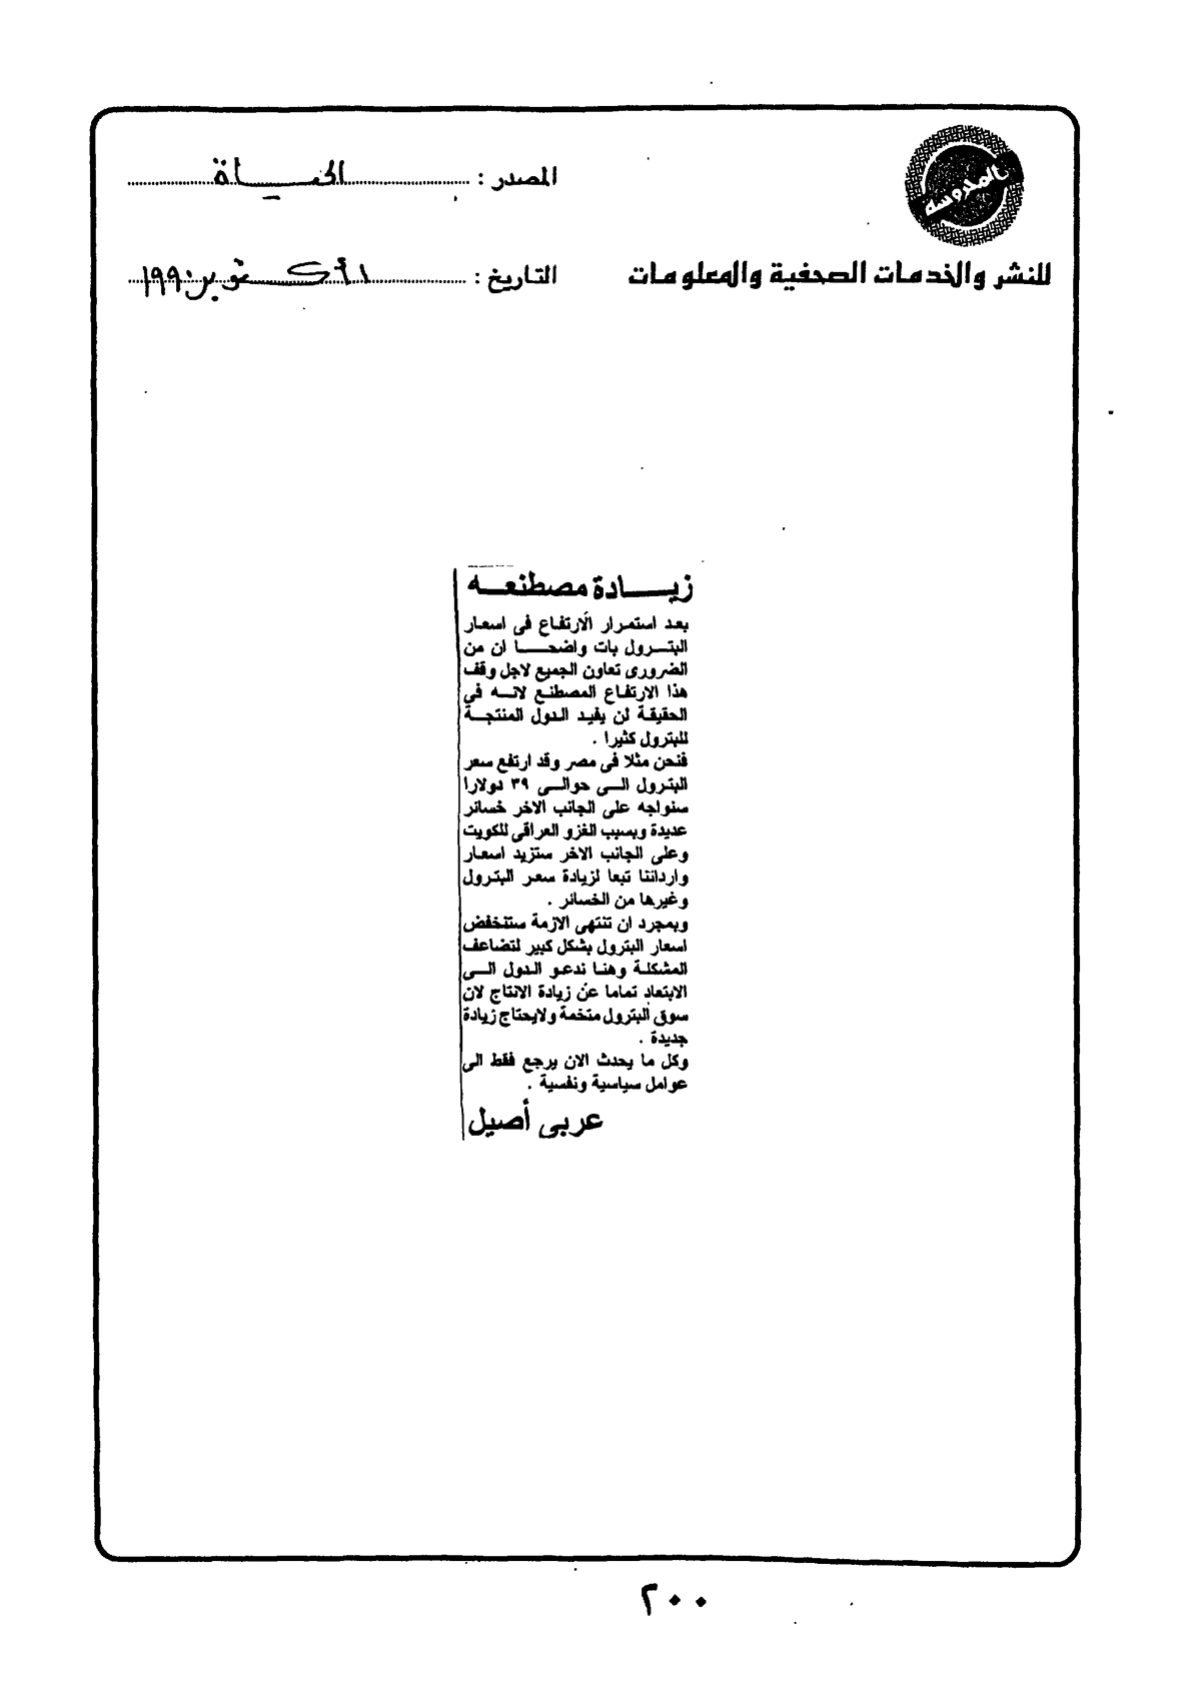 المحروسة
المصدر : الحياة
للنشر والخدمات الصحفية والمعلومات
التاريخ : ١ أكتوبر ١٩٩٠
زيـــادة مصطنعـــه
بعد استمرار الارتفاع فى اسعار
البتــرول بات واضحــــا ان من
الضرورى تعاون الجميع لاجل وقف
هذا الارتفاع المصطنع لانــه فى
الحقيقة لن يفيد الدول المنتجــة
للبترول كثيرا .
فنحن مثلا فى مصر وقد ارتفع سعر
البترول الــى حوالــى ٣٩ دولارا
سنواجه على الجانب الاخر خسائر
عديدة وبسبب الغزو العراقى للكويت
وعلى الجانب الاخر ستزيد اسعار
وارداتنا تبعا لزيادة سعر البترول
وغيرها من الخسائر .
وبمجرد ان تنتهى الازمة ستنخفض
اسعار البترول بشكل كبير لتضاعف
المشكلة وهنا ندعو الدول الــى
الابتعاد تماما عن زيادة الانتاج لان
سوق البترول متخمة ولايحتاج زيادة
جديدة .
وكل ما يحدث الان يرجع فقط الى
عوامل سياسية ونفسية .
عربى أصيل
٢٠٠